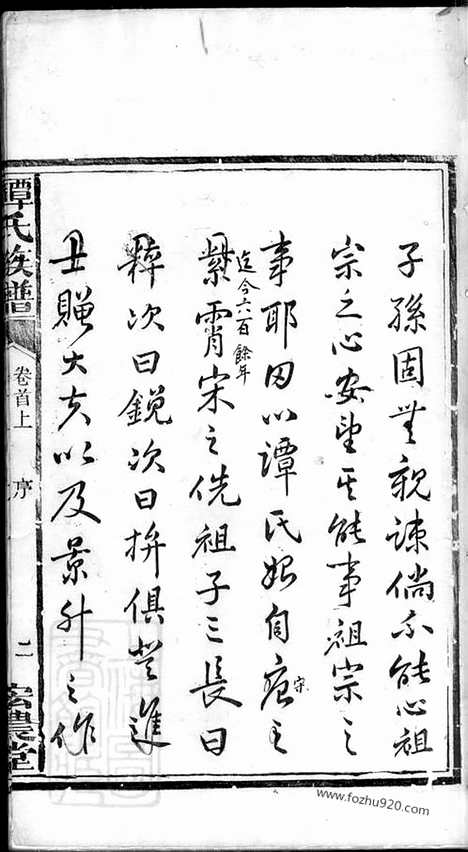 子孫固無親疎倘不能心祖
宗之心安望其能事祖宗之
事耶因以譚氏始自唐宋之
紫霄宋之侁祖子三長曰
迄今六百餘年
粹次曰銳次曰拚俱登進
士贈大夫以及景升之作
譚氏族譜
卷首上
序
二
宏農堂
www.fozhu920.com